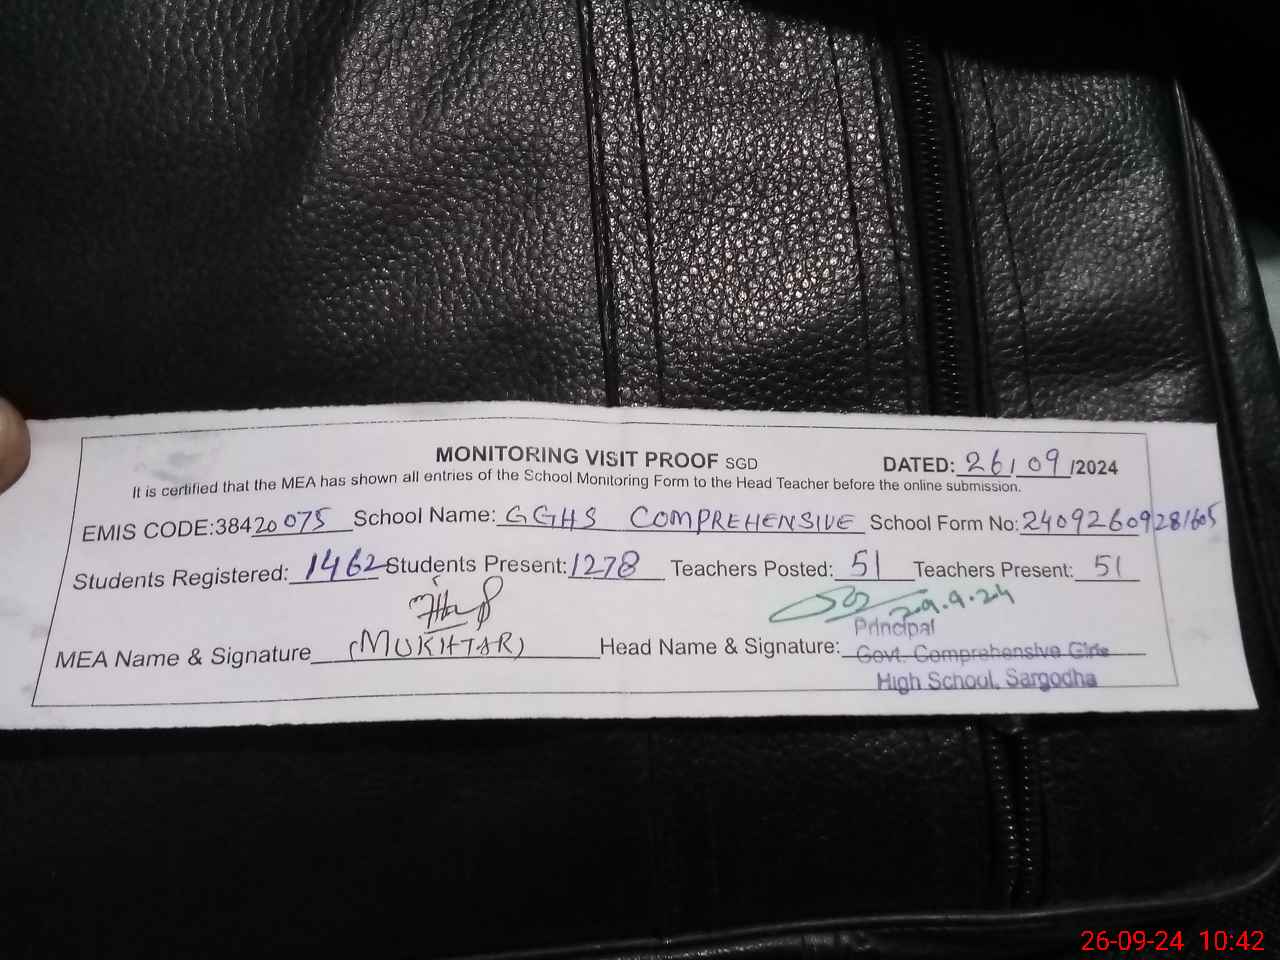 MONITORING VISIT PROOF SGD DATED: 26/09/2024
It is certified that the MEA has shown all entries of the School Monitoring Form to the Head Teacher before the online submission.
EMIS CODE:38420075 School Name: GGHS COMPREHENSIVE School Form No: 24092609281605
Students Registered: 1462 Students Present: 1278 Teachers Posted: 51 Teachers Present: 51
29.9.24
Principal
MEA Name & Signature (MUKHTAR) Head Name & Signature: Govt. Comprehensive Girls
High School, Sargodha
26-09-24 10:42